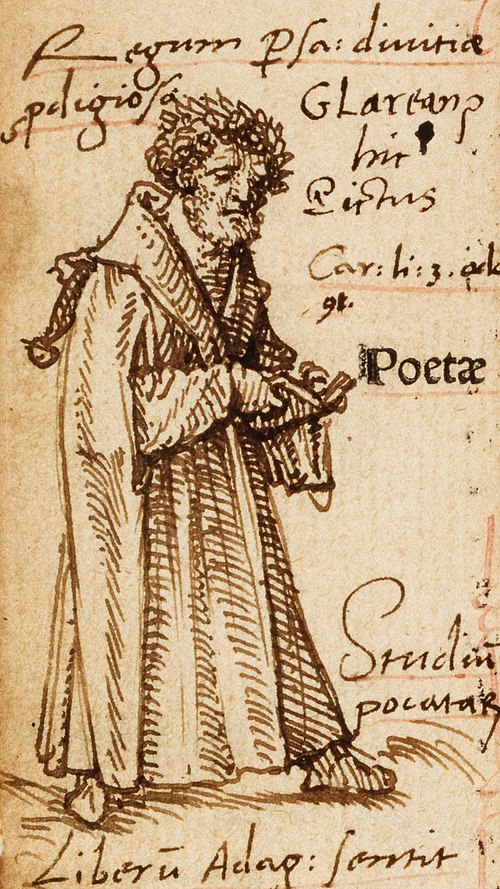 Regum Psa: diuitiæ
pdigiosa
GLareanꝰ
hic
Pictus
Car: li: 3. od
91.
Poetæ
Studiū
pocatar
Liberū Adag: sentit